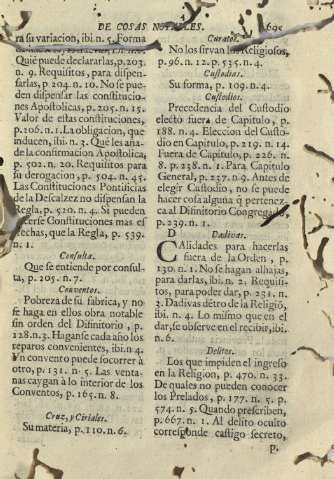 DE COSAS NOTABLES.
ra su variacion, ibi. n. 5. Forma
Quiẽ puede declararlas, p. 203.
n. 9. Requisitos, para dispen-
sarlas, p. 204. n. 10. No se pue-
den dispensar las constitucio-
nes Apostolicas, p. 205. n. 15.
Valor de estas constituciones,
p. 206. n. 1. La obligacion, que
inducen, ibi. n. 3. Què les aña-
de la confirmacion Apostolica,
p. 502. n. 20. Requisitos para
su derogacion, p. 504. n. 45.
Las Constituciones Pontificias
de la Descalzez no dispensan la
Regla, p. 520. n. 4. Si pueden
Constituciones mas es-
echas, que la Regla, p. 539.
n. 1.
Consulta.
Que se entiende por consul-
ta, p. 205. n. 7.
Conventos.
Pobreza de su fabrica, y no
se haga en ellos obra notable
sin orden del Difinitorio, p.
128. n. 3. Haganse cada año los
reparos convenientes, ibi. n. 4.
Vn convento puede socorrer à
otro, p. 131. n. 5. Las venta-
nas caygan à lo interior de los
Conventos, p. 165. n. 8.
Cruz, y Ciriales.
Su materia, p. 110. n. 6.
695
Curatos.
No los sirvan los Religiosos,
p. 96. n. 12. p. 535. n. 4.
Custodias.
Su forma, p. 109. n. 4.
Custodios.
Precedencia del Custodio
electo fuera de Capitulo, p.
188. n. 4. Eleccion del Custo-
dio en Capitulo, p. 219. n. 14.
Fuera de Capitulo, p. 226. n.
8. p. 238. n. 1. Para Capitulo
General, p. 237. n. 9. Antes de
elegir Custodio, no se puede
hacer cosa alguna q̃ pertenez-
ca al Difinitorio Congregado,
p. 239. n. 1.
D
Dadivas.
CAlidades para hacerlas
fuera de la Orden, p.
130. n. 1. No se hagan alhajas,
para darlas, ibi. n. 2. Requisi-
tos, para poder dar, p. 231. n.
3. Dadivas dẽtro de la Religiõ,
ibi. n. 4. Lo mismo que en el
dar, se observe en el recibir, ibi.
n. 6.
Delitos.
Los que impiden el ingreso
en la Religion, p. 470. n. 33.
De quales no pueden conocer
los Prelados, p. 177. n. 5. p.
574. n. 5. Quando prescriben,
p. 667. n. 1. Al delito oculto
corresponde castigo secreto,
p.